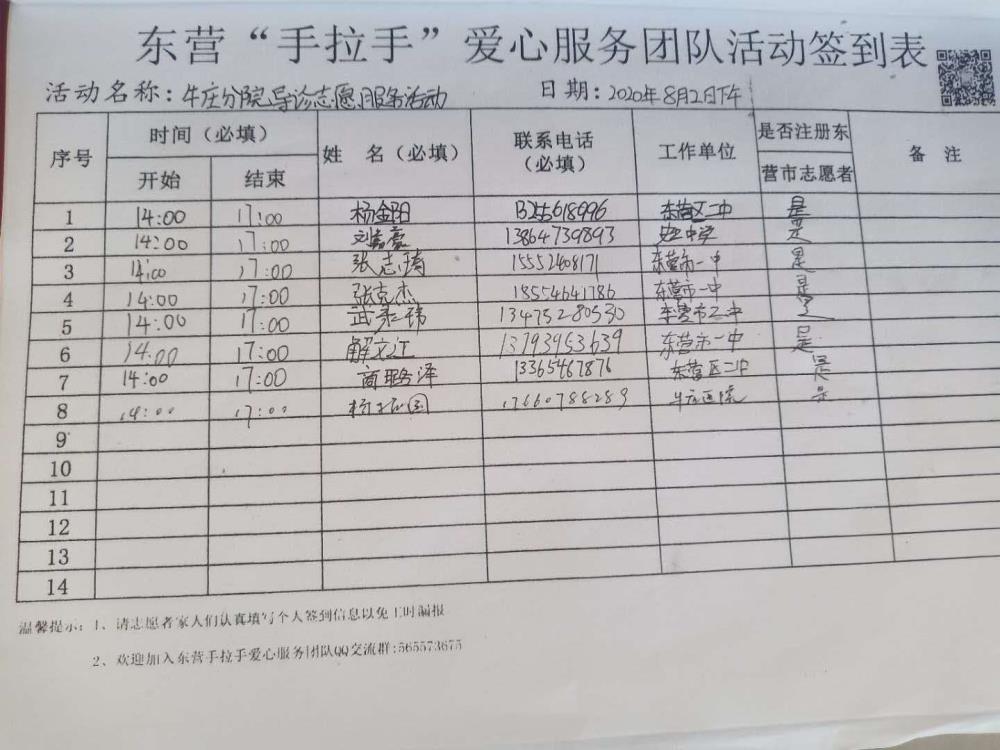 东营“手拉手”爱心服务团队活动签到表
活动名称：牛庄分院导诊志愿服务活动 日期：2020年8月2日下午
序号 时间（必填） 姓 名（必填） 联系电话（必填） 工作单位 是否注册东营市志愿者 备 注
开始 结束
1 14:00 17:00 杨金阳 东营区二中 是
2 14:00 17:00 刘嘉豪 13864739893 是
3 14:00 17:00 张志琦 15552408171 东营市一中 是
4 14:00 17:00 张克杰 18554641786 东营市一中 是
5 14:00 17:00 13475280530 是
6 14:00 17:00 解文江 13793953639 东营市一中 是
7 14:00 17:00 商熙泽 13365467876 东营区二中 是
8 14:00 17:00 17660788289 是
9
10
11
12
13
14
温馨提示：1、请志愿者家人们认真填写个人签到信息以免工时漏报
2、欢迎加入东营手拉手爱心服务团队QQ交流群:565573675